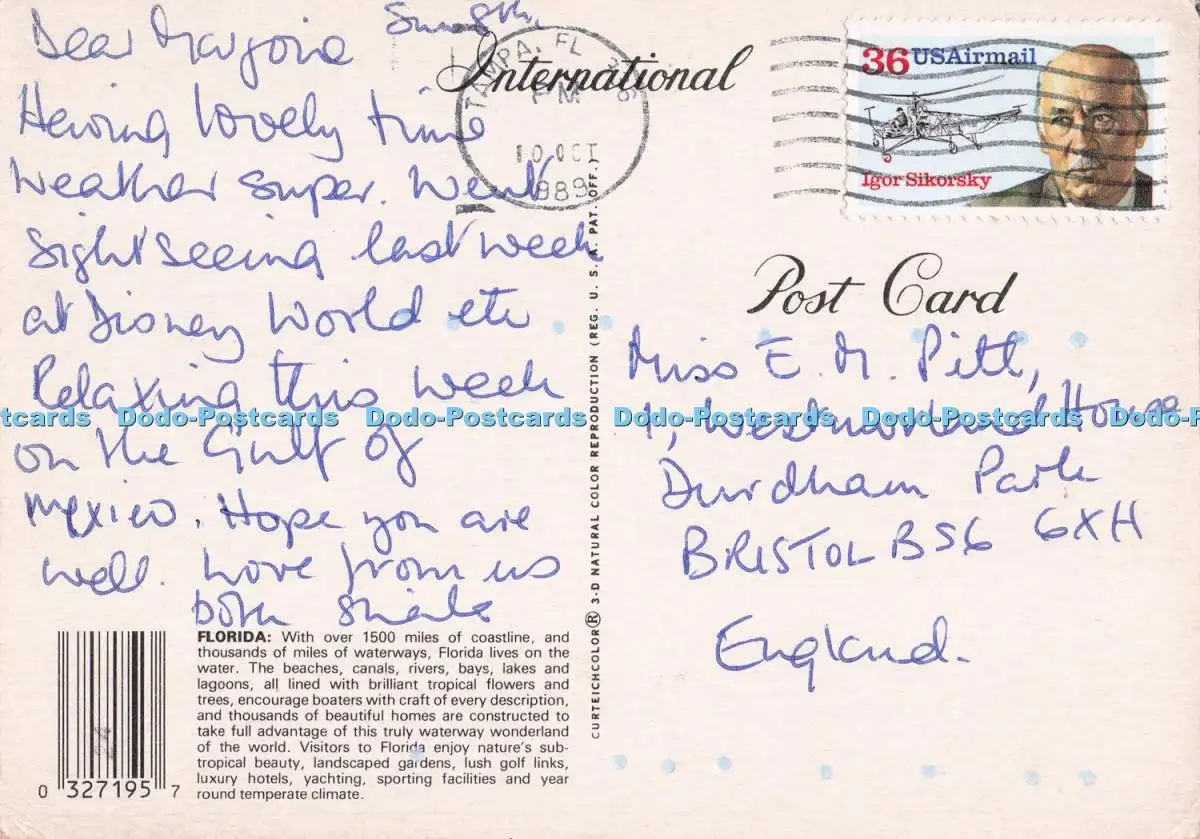 Dear Marjorie
Having lovely time
weather super. Went
sightseeing last week
at Disney World etc
Relaxing this week
on the Gulf of
Mexico. Hope you are
well. Love from us
both Sheila
FLORIDA: With over 1500 miles of coastline, and
thousands of miles of waterways, Florida lives on the
water. The beaches, canals, rivers, bays, lakes and
lagoons, all lined with brilliant tropical flowers and
trees, encourage boaters with craft of every description,
and thousands of beautiful homes are constructed to
take full advantage of this truly waterway wonderland
of the world. Visitors to Florida enjoy nature's sub-
tropical beauty, landscaped gardens, lush golf links,
luxury hotels, yachting, sporting facilities and year
round temperate climate.
0 327195 7
CURTEICHCOLOR® 3-D NATURAL COLOR REPRODUCTION (REG. U. S. A. PAT. OFF.)
International
TAMPA, FL
PM
10 OCT
1989
36 USAirmail
Igor Sikorsky
Post Card
Miss E. M. Pitt,
1, Westmorland House
Durdham Park
BRISTOL BS6 6XH
England.
Dodo-Postcards Dodo-Postcards Dodo-Postcards Dodo-Postcards Dodo-Postcards